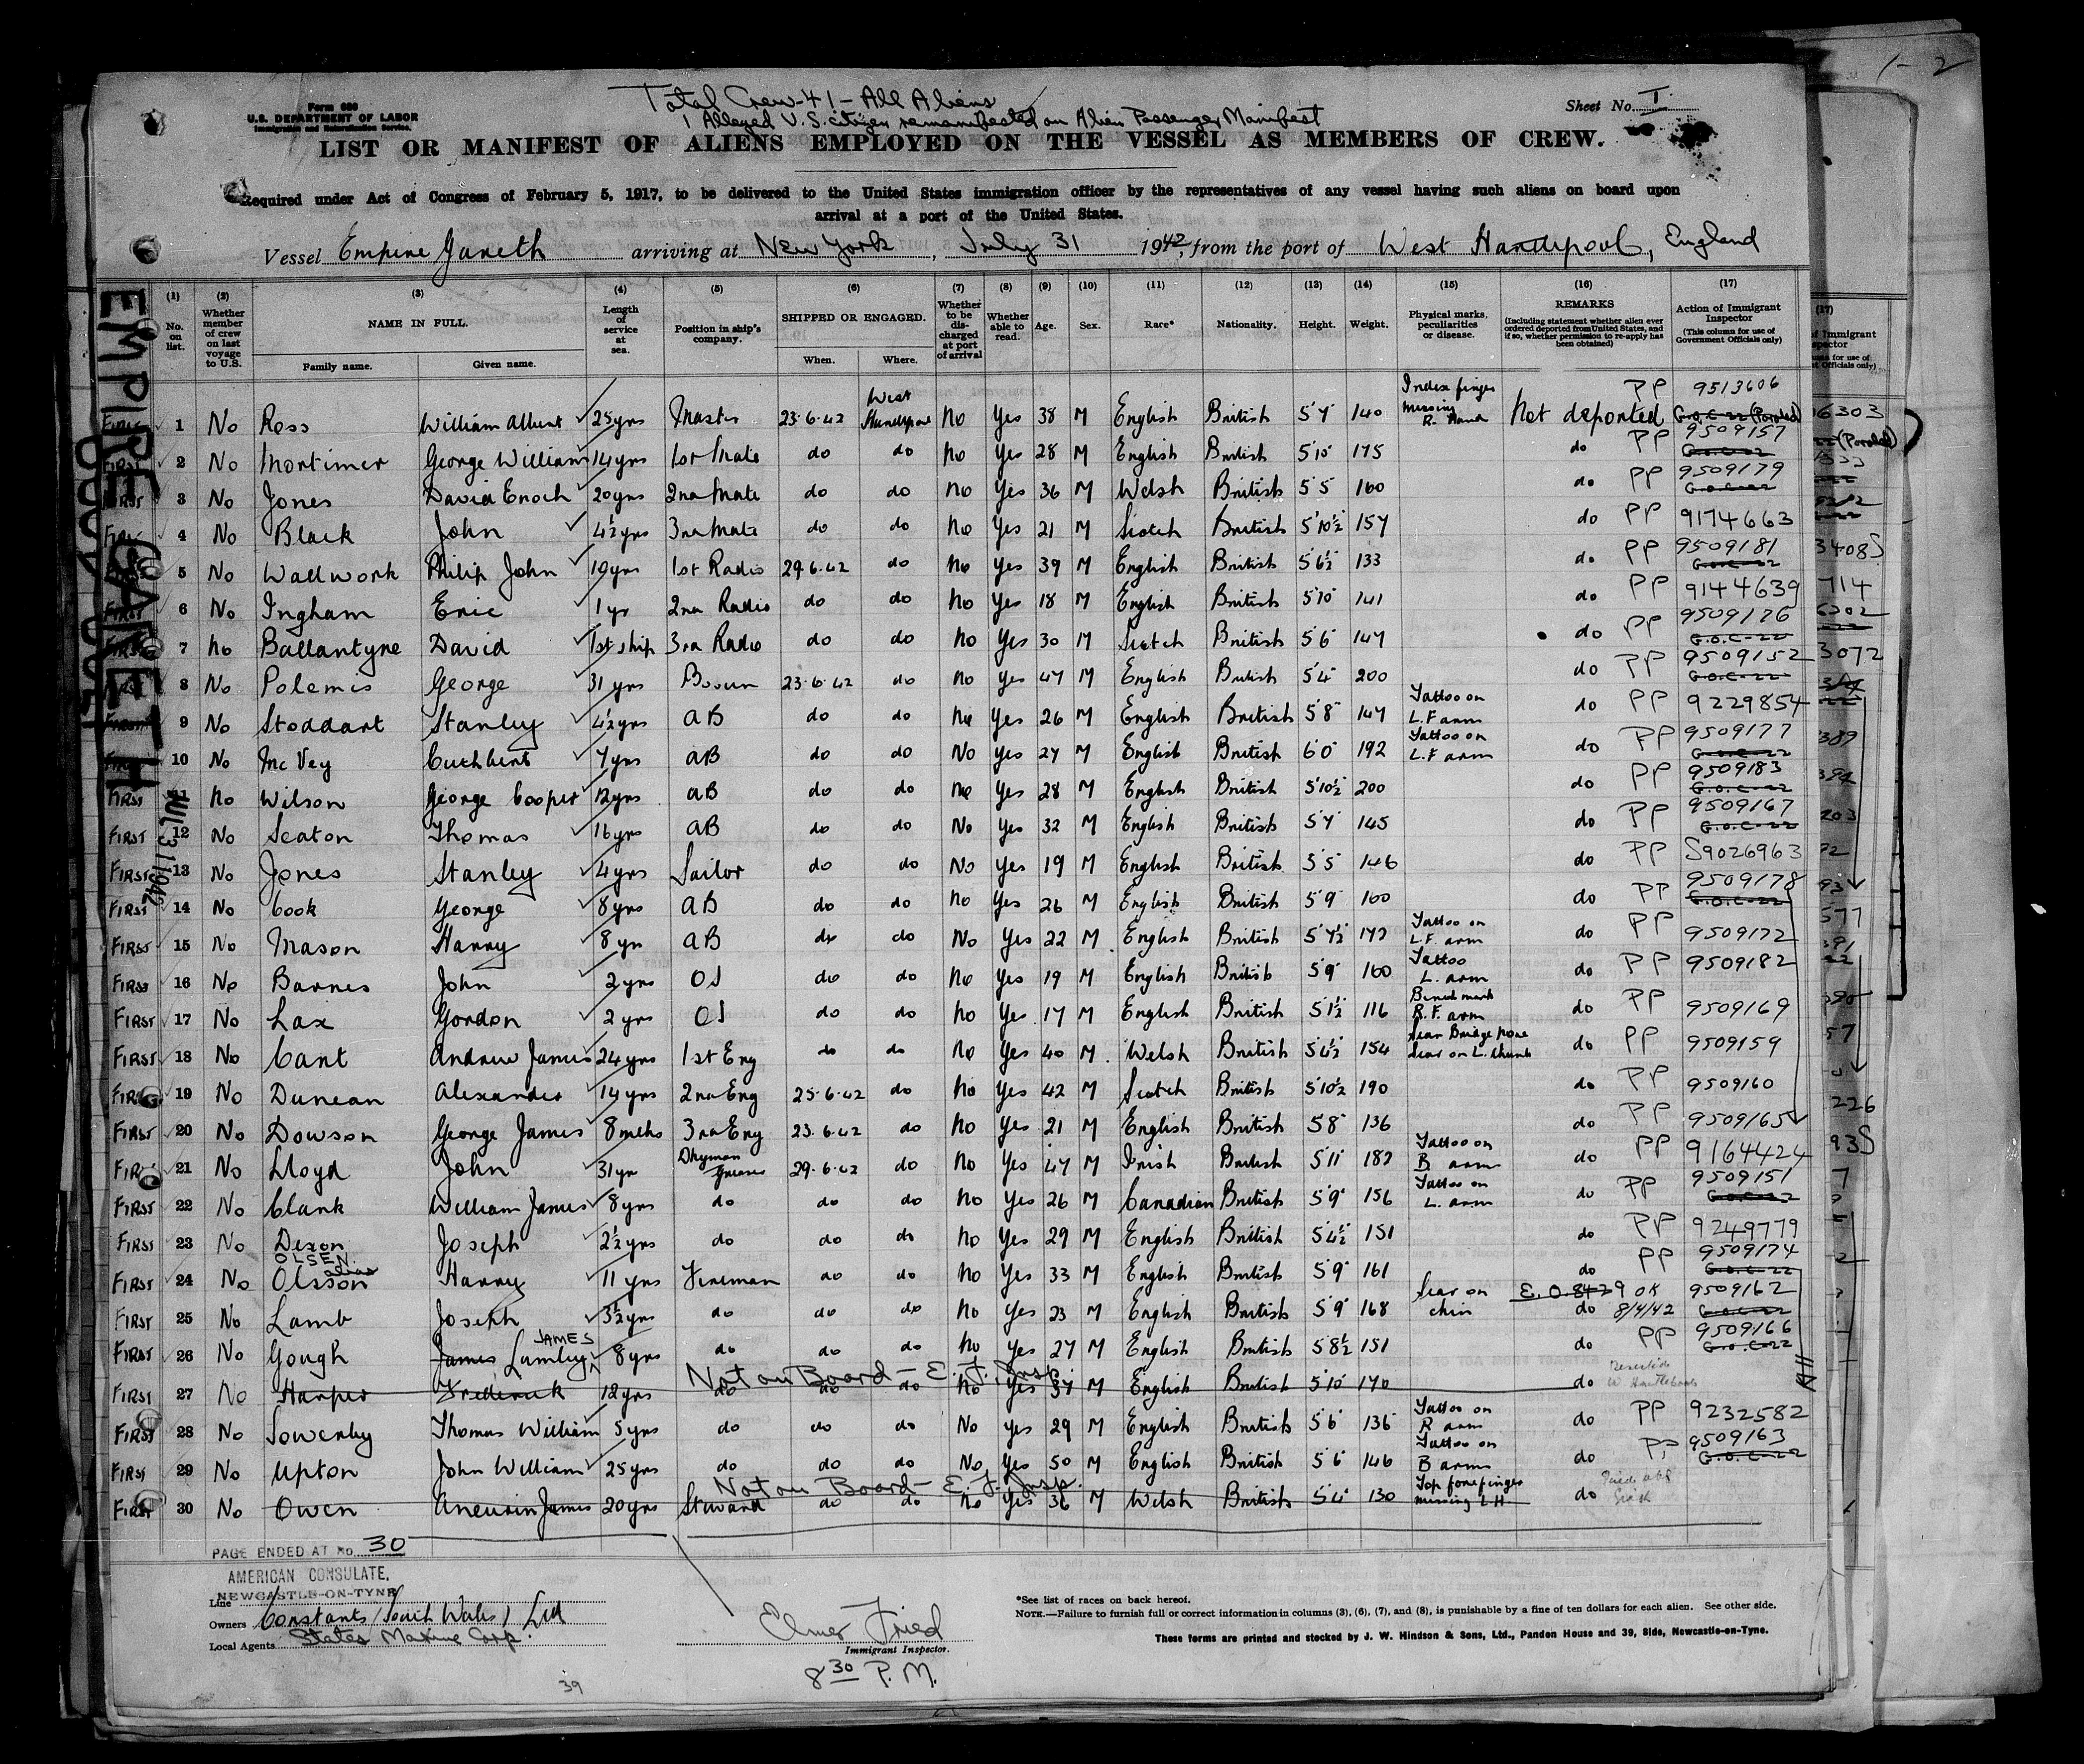 1-2
Form 680
U.S. DEPARTMENT OF LABOR
Immigration and Naturalization Service.
Total Crew-41-All Aliens
1 Alleged U.S. citizen remanifested on Alien Passenger Manifest
Sheet No. I
LIST OR MANIFEST OF ALIENS EMPLOYED ON THE VESSEL AS MEMBERS OF CREW.
Required under Act of Congress of February 5, 1917, to be delivered to the United States immigration officer by the representatives of any vessel having such aliens on board upon
arrival at a port of the United States.
Vessel Empire Gareth arriving at New York, July 31 1942, from the port of West Hartlepool, England
(1) (2) (3) (4) (5) (6) (7) (8) (9) (10) (11) (12) (13) (14) (16) (17)
No. on list. Whether member of crew on last voyage to U.S. NAME IN FULL. Family name. Given name. Length of service at sea. Position in ship's company. SHIPPED OR ENGAGED. When. Where. Whether to be discharged at port of arrival Whether able to read. Age. Sex. Race* Nationality. Height. Weight. Physical marks, peculiarities or disease. REMARKS (Including statement whether alien ever ordered deported from United States, and if so, whether permission to re-apply has been obtained) Action of Immigrant Inspector (This column for use of Government Officials only)
EMPIRE GARETH
JUL 31 1942
FIRST 1 No Ross William Albert 25yrs Master 23.6.42 West Hartlepool No Yes 38 M English British 5'7" 140 Index finger missing R. Hand Not deported PP 9513606 G.O.C-22 (Paroled)
FIRST 2 No Mortimer George William 14yrs 1st Mate do do No Yes 28 M English British 5'10" 175 do PP 9509157 G.O.C-22
FIRST 3 No Jones David Enoch 20yrs 2nd Mate do do No Yes 36 M Welsh British 5'5" 160 do PP 9509179 G.O.C-22
FIRST 4 No Black John 4½yrs 3rd Mate do do No Yes 21 M Scotch British 5'10½ 157 do PP 9174663
5 No Wallwork Philip John 19yrs 1st Radio 29.6.42 do No Yes 39 M English British 5'6½ 133 do PP 9509181 G.O.C-22
FIRST 6 No Ingham Eric 1 yr 2nd Radio do do No Yes 18 M English British 5'10" 141 do PP 9144639
FIRST 7 No Ballantyne David 1st ship 3rd Radio do do No Yes 30 M Scotch British 5'6" 147 do PP 9509176 G.O.C-22
FIRST 8 No Polemis George 31 yrs Bosun 23.6.42 do No Yes 47 M English British 5'4" 200 do PP 9509152 G.O.C-22
FIRST 9 No Stoddart Stanley 4½yrs AB do do No Yes 26 M English British 5'8" 147 Tattoo on L.F arm do PP 9229854
FIRST 10 No McVey Cuthbert 7yrs AB do do No Yes 27 M English British 6'0" 192 Tattoo on L.F arm do PP 9509177 G.O.C-22
FIRST 11 No Wilson George Cooper 12yrs AB do do No Yes 28 M English British 5'10½ 200 do PP 9509183 G.O.C-22
FIRST 12 No Seaton Thomas 16yrs AB do do No Yes 32 M English British 5'7" 145 do PP 9509167 G.O.C-22
FIRST 13 No Jones Stanley 4yrs Sailor do do No Yes 19 M English British 5'5" 146 do PP S9026963
FIRST 14 No Cook George 8yrs AB do do No Yes 26 M English British 5'9" 160 do PP 9509178 G.O.C-22
FIRST 15 No Mason Harry 8 yrs AB do do No Yes 22 M English British 5'7½ 172 Tattoo on L.F. arm do PP 9509172
FIRST 16 No Barnes John 2 yrs OS do do No Yes 19 M English British 5'9" 160 Tattoo L. arm do PP 9509182
FIRST 17 No Lax Gordon 2 yrs OS do do No Yes 17 M English British 5'1½ 116 Birth mark R.F. arm do PP 9509169
FIRST 18 No Cant Andrew James 24yrs 1st Eng do do No Yes 40 M Welsh British 5'4½ 154 Scar Bridge Nose Scar on L. thumb do PP 9509159
FIRST 19 No Duncan Alexander 14yrs 2nd Eng 25.6.42 do No Yes 42 M Scotch British 5'10½ 190 do PP 9509160
FIRST 20 No Dowson George James 8mths 3rd Eng 23.6.42 do No Yes 21 M English British 5'8" 136 do PP 9509165
FIRST 21 No Lloyd John 31yr Dkyman Greaser 29.6.42 do No Yes 47 M Irish British 5'11" 182 Tattoo on B arm do PP 9164424
FIRST 22 No Clark William James 8yrs do do do No Yes 26 M Canadian British 5'9" 156 Tattoo on L. arm do PP 9509151 G.O.C-22
FIRST 23 No Dixon Joseph 2½yrs do do do No Yes 29 M English British 5'4½ 151 do PP 9249779
FIRST 24 No OLSEN alias Olsson Harry 11 yrs Fireman do do No Yes 33 M English British 5'9" 161 do PP 9509174 G.O.C-22
FIRST 25 No Lamb Joseph 3½yrs do do do No Yes 23 M English British 5'9" 168 Scar on chin E.O. 8429 OK do 8/4/42 9509162 G.O.C-22
FIRST 26 No Gough James Lumley JAMES 8yrs do do do No Yes 27 M English British 5'8½ 151 do PP 9509166 G.O.C-22
Not on Board - E. F. Insp.
FIRST 27 No Harper Frederick 12yrs do do do No Yes 37 M English British 5'10" 170 do Deserted W Hartlepool
FIRST 28 No Sowerby Thomas William 5yrs do do do No Yes 29 M English British 5'6" 136 Tattoo on R arm do PP 9232582
FIRST 29 No Upton John William 25yrs do do do No Yes 50 M English British 5'6" 146 Tattoo on B arms do PP 9509163 G.O.C-22
Not on Board - E. F. Insp.
FIRST 30 No Owen Aneurin James 20yrs Steward do do No Yes 36 M Welsh British 5'4" 130 Top forefinger missing L.H do
PAGE ENDED AT No. 30
AMERICAN CONSULATE,
NEWCASTLE-ON-TYNE
Line
Owners Constants (South Wales) Ltd
Local Agents States Marine Corp.
Elmer Fried
Immigrant Inspector.
8 30 P.M.
39
*See list of races on back hereof.
NOTE.—Failure to furnish full or correct information in columns (3), (6), (7), and (8), is punishable by a fine of ten dollars for each alien. See other side.
These forms are printed and stocked by J. W. Hindson & Sons, Ltd., Pandon House and 39, Side, Newcastle-on-Tyne.